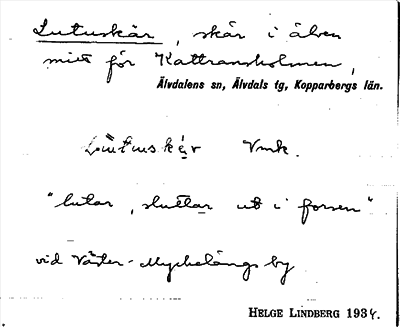 Lutuskär, skär i älven
mitt för Kattransholmen,
Älvdalens sn, Älvdals tg, Kopparbergs län.
Vmk.
"lutar, sluttar ut i forsen"
vid Väster-Myckelängs by
HELGE LINDBERG 1934.